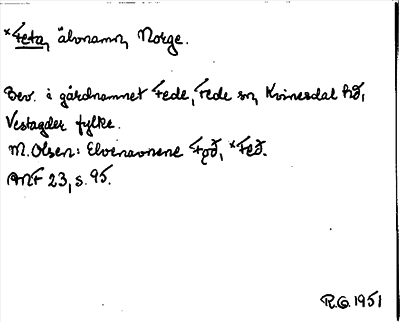 *Feta, älvnamn, Norge.
Bev. i gårdnamnet Fede, Fede sn, Kvinesdal hd,
Vestagder fylke.
M. Olsen: Elvenavnene Fǫð, *Feð.
ANF 23, s. 95.
R.G. 1951